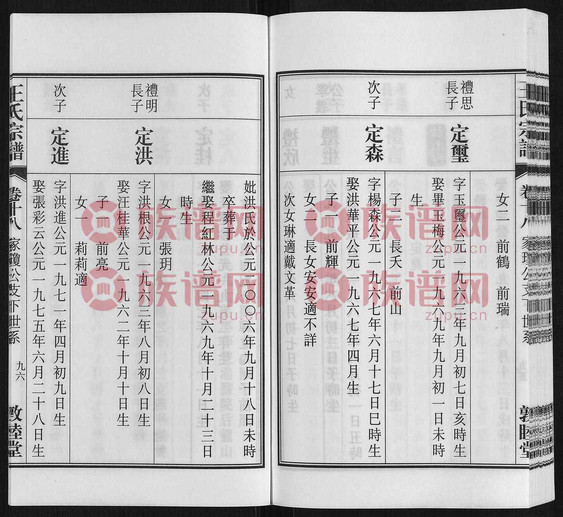 王氏宗譜
卷十八
敦睦堂
女二 前鶴 前瑞
禮思
長子
定璽
字玉璽公元一九六三年九月初七日亥時生
娶畢玉梅公元一九六九年九月初一日未時
生
子二 長夭 前山
次子
定森
字楊森公元一九六七年六月十七日巳時生
娶洪華平公元一九六七年四月生
子一 前輝
女二 長女安安適不詳
次女琳適戴文革
妣洪氏於公元二〇〇六年九月十八日未時
卒葬于
繼娶程紅林公元一九六九年十月二十三日
時生
女一 張玥
禮明
長子
定洪
字洪根公元一九六二年八月初八日生
娶汪桂華公元一九六二年十月十日生
子一 前亮
女一 莉莉適
次子
定進
字洪進公元一九七一年四月初九日生
娶張彩云公元一九七五年六月二十八日生
王氏宗譜
卷十八
家瓊公支下世系
九六
敦睦堂
族谱网